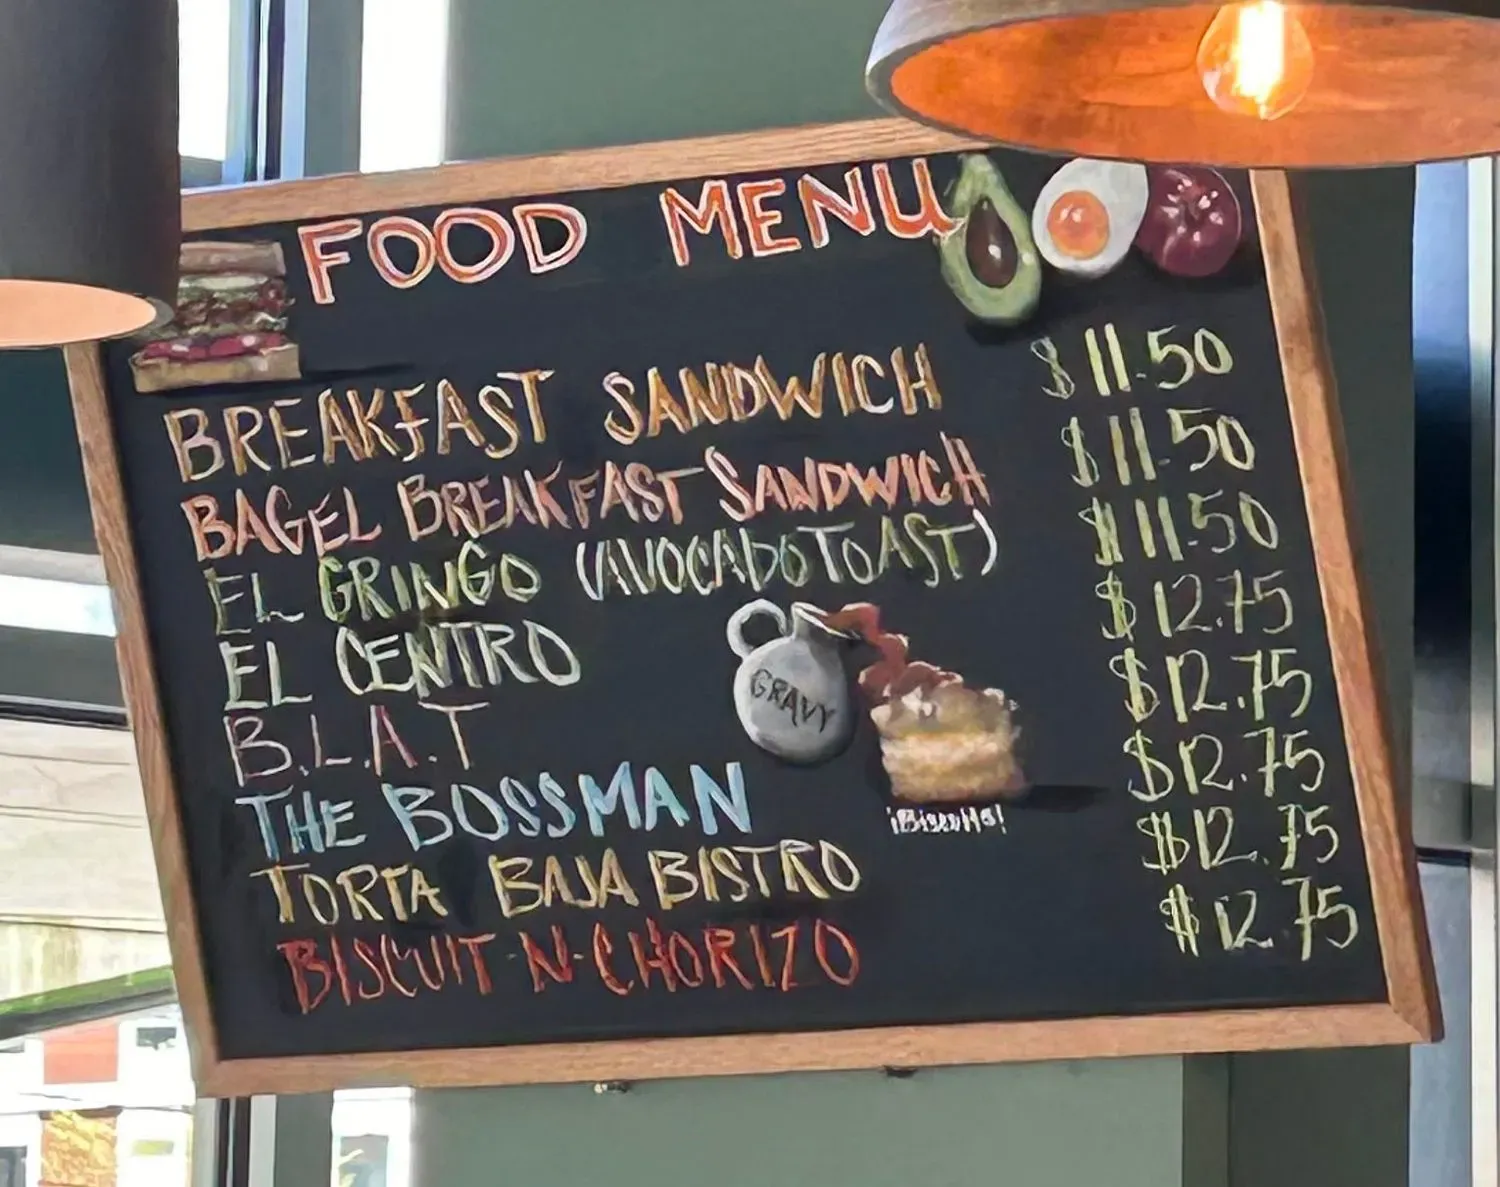 FOOD MENU
BREAKFAST SANDWICH $11.50
BAGEL BREAKFAST SANDWICH $11.50
EL GRINGO (AVOCADO TOAST) $11.50
EL CENTRO $12.75
B.L.A.T $12.75
THE BOSSMAN $12.75
TORTA BAJA BISTRO $12.75
BISCUIT-N-CHORIZO $12.75
GRAVY